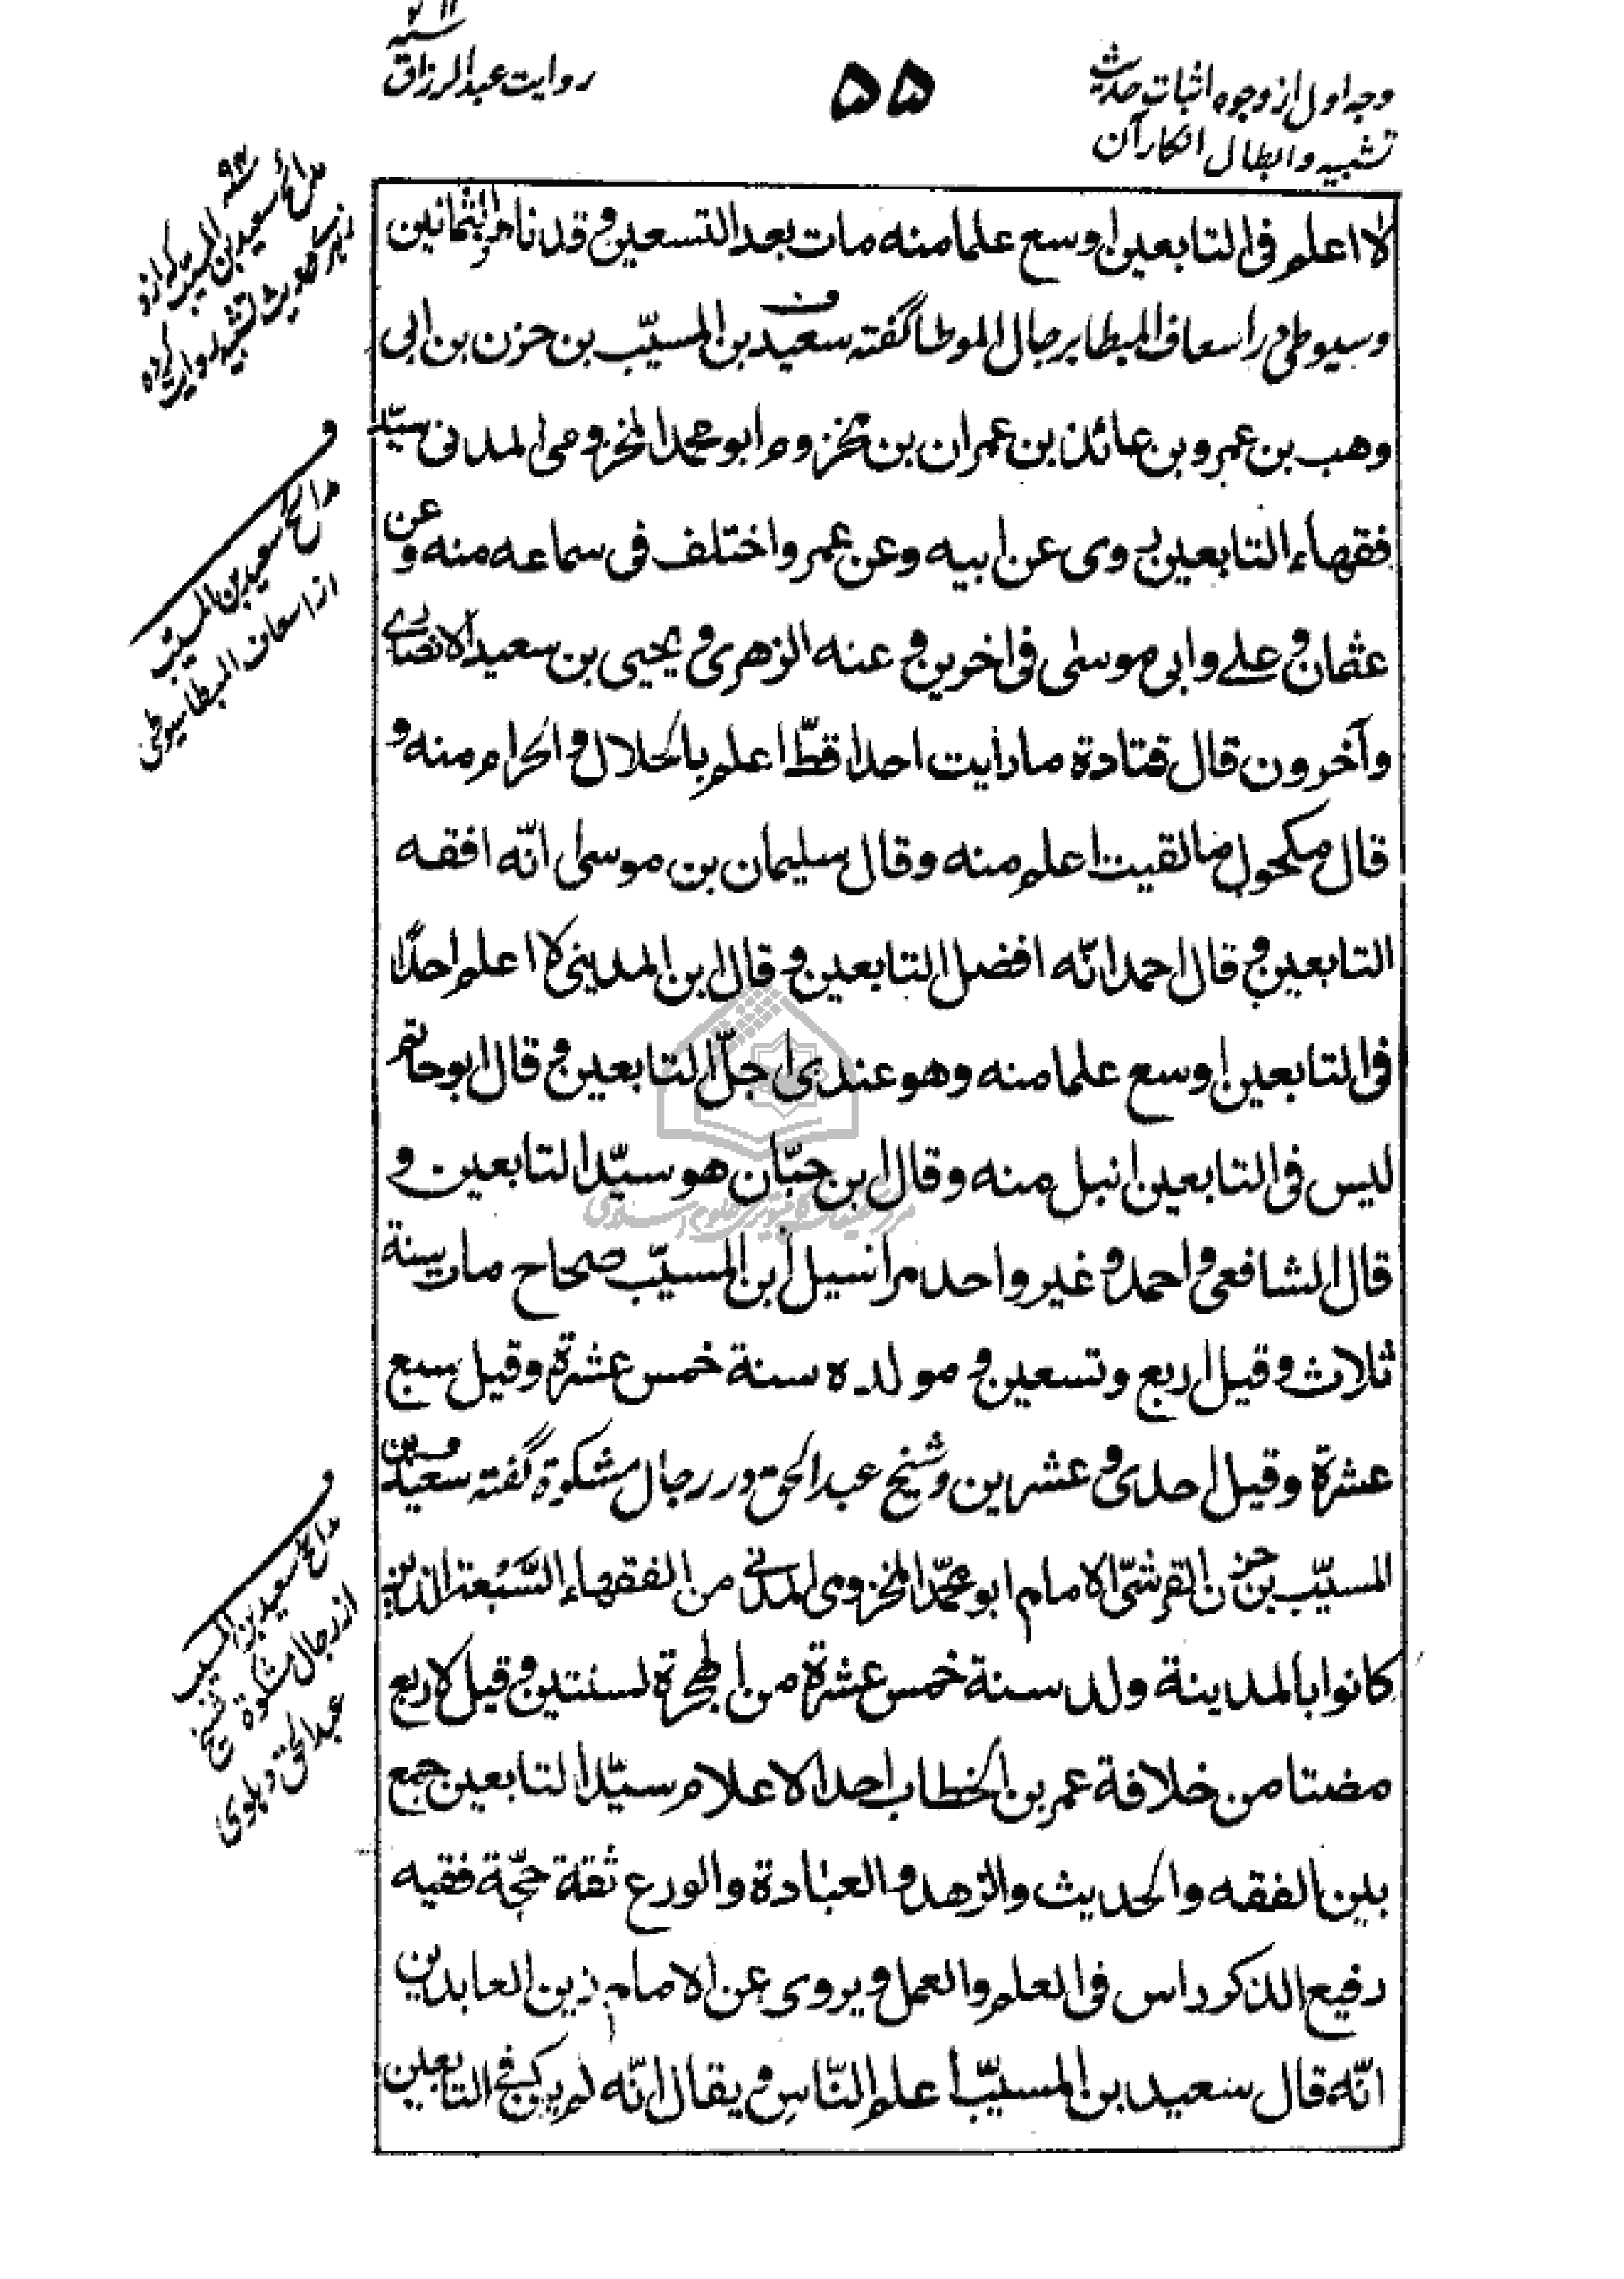 وجه اول از وجوه اثبات حدیث
تشبیه و ابطال انکار آن
۵۵
روایت عبدالرزاق
لا اعلم فی التابعین اوسع علما منه مات بعد التسعین و قد ناهز الثمانین
و سیوطی در اسعاف المبطا برجال الموطا گفته سعید بن المسیّب بن حزن بن ابی
وهب بن عمرو بن عائذ بن عمران بن مخزوم ابو محمد المخزومی المدنی سیّد
فقهاء التابعین روی عن ابیه وعن عمر واختلف فی سماعه منه و عن
عثمان و علے وابی موسی فی اخرین و عنه الزهری و یحیی بن سعید الانصاری
وآخرون قال قتادة ما رأیت احدا قطّ اعلم بالحلال و الحرام منه و
قال مکحول ما لقیت اعلم منه وقال سلیمان بن موسی انّه افقه
التابعین و قال احمد انّه افضل التابعین و قال ابن المدینی لا اعلم احدًا
فی التابعین اوسع علما منه وهو عندی اجلّ التابعین و قال ابو حاتم
لیس فی التابعین انبل منه وقال ابن حبّان هو سیّد التابعین و
قال الشافعی و احمد و غیر واحد مراسیل ابن المسیّب صحاح مات سنة
ثلاث وقیل اربع وتسعین و مولده سنة خمس عشرة وقیل سبع
عشرة وقیل احدی و عشرین و شیخ عبد الحق در رجال مشکوة گفته سعید بن
المسیّب بن حزن القرشیّ الامام ابو محمّد المخزومی المدنی من الفقهاء السَّبْعة الذین
کانوا بالمدینة ولد سنة خمس عشرة من الهجرة لسنتین و قیل لاربع
مضتا من خلافة عمر بن الخطاب احد الاعلام سیّد التابعین جمع
بین الفقه والحدیث والزهد و العبادة والورع ثقة حجّة فقیه
رفیع الذکر راس فی العلم والعمل و یروی عن الامام زین العابدین
انّه قال سعید بن المسیّب اعلم النّاس و یقال انّه لم یکن فی التابعین
مدائح سعید بن المسیب که از و
نیز حدیث تشبیه روایت کرده
و
مدائح سعید بن المسیب
از اسعاف المبطا سیوطی
و
مدائح سعید بن المسیب
از رجال مشکوة شیخ
عبد الحق دهلوی